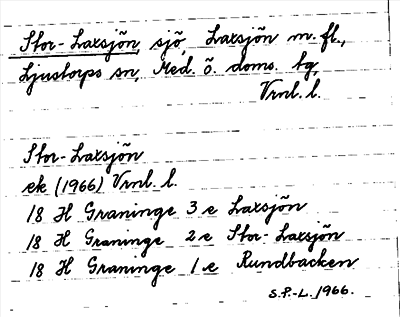 Stor-Laxsjön, sjö, Laxsjön m.fl.,
Ljustorps sn, Med. ö. doms. tg,
Vrnl. l.
Stor-Laxsjön
ek (1966) Vrnl. l.
18 H Graninge 3 e Laxsjön
18 H Graninge 2 e Stor-Laxsjön
18 H Graninge 1 e Rundbacken
S.P.-L. 1966.